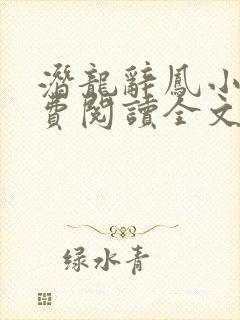 潛龍辭鳳小
費閱讀全文
绿水青